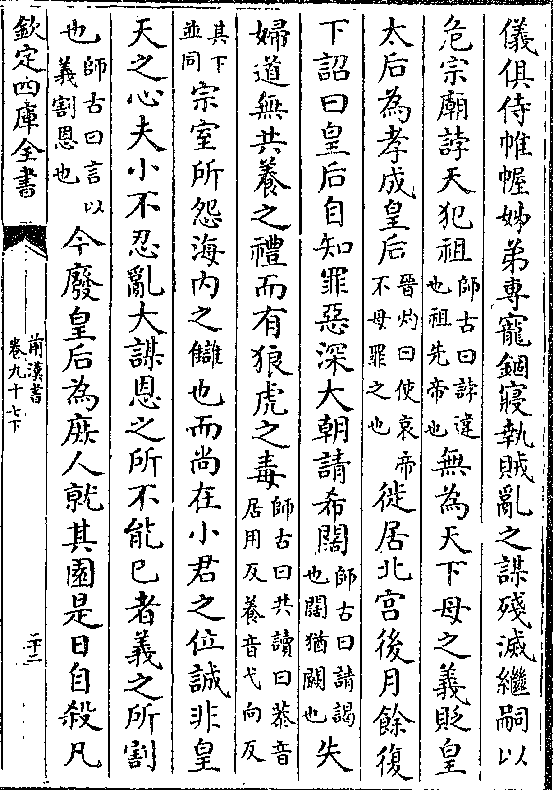 儀俱侍帷幄姊弟專寵錮寢執賊亂之謀殘滅繼嗣以
危宗廟誖天犯祖師古曰誖違也祖先帝也無為天下母之義貶皇
太后為孝成皇后晉灼曰使哀帝不母罪之也徙居北宮後月餘復
下詔曰皇后自知罪惡深大朝請希闊師古曰請謁也闊猶闕也失
婦道無共養之禮而有狼虎之毒師古曰共讀曰恭音居用反養音弋向反
其下並同宗室所怨海內之讎也而尚在小君之位誠非皇
天之心夫小不忍亂大謀恩之所不能已者義之所割
也師古曰言以義割恩也今廢皇后為庶人就其園是日自殺凡
欽定四庫全書
前漢書
卷九十七下
二十二